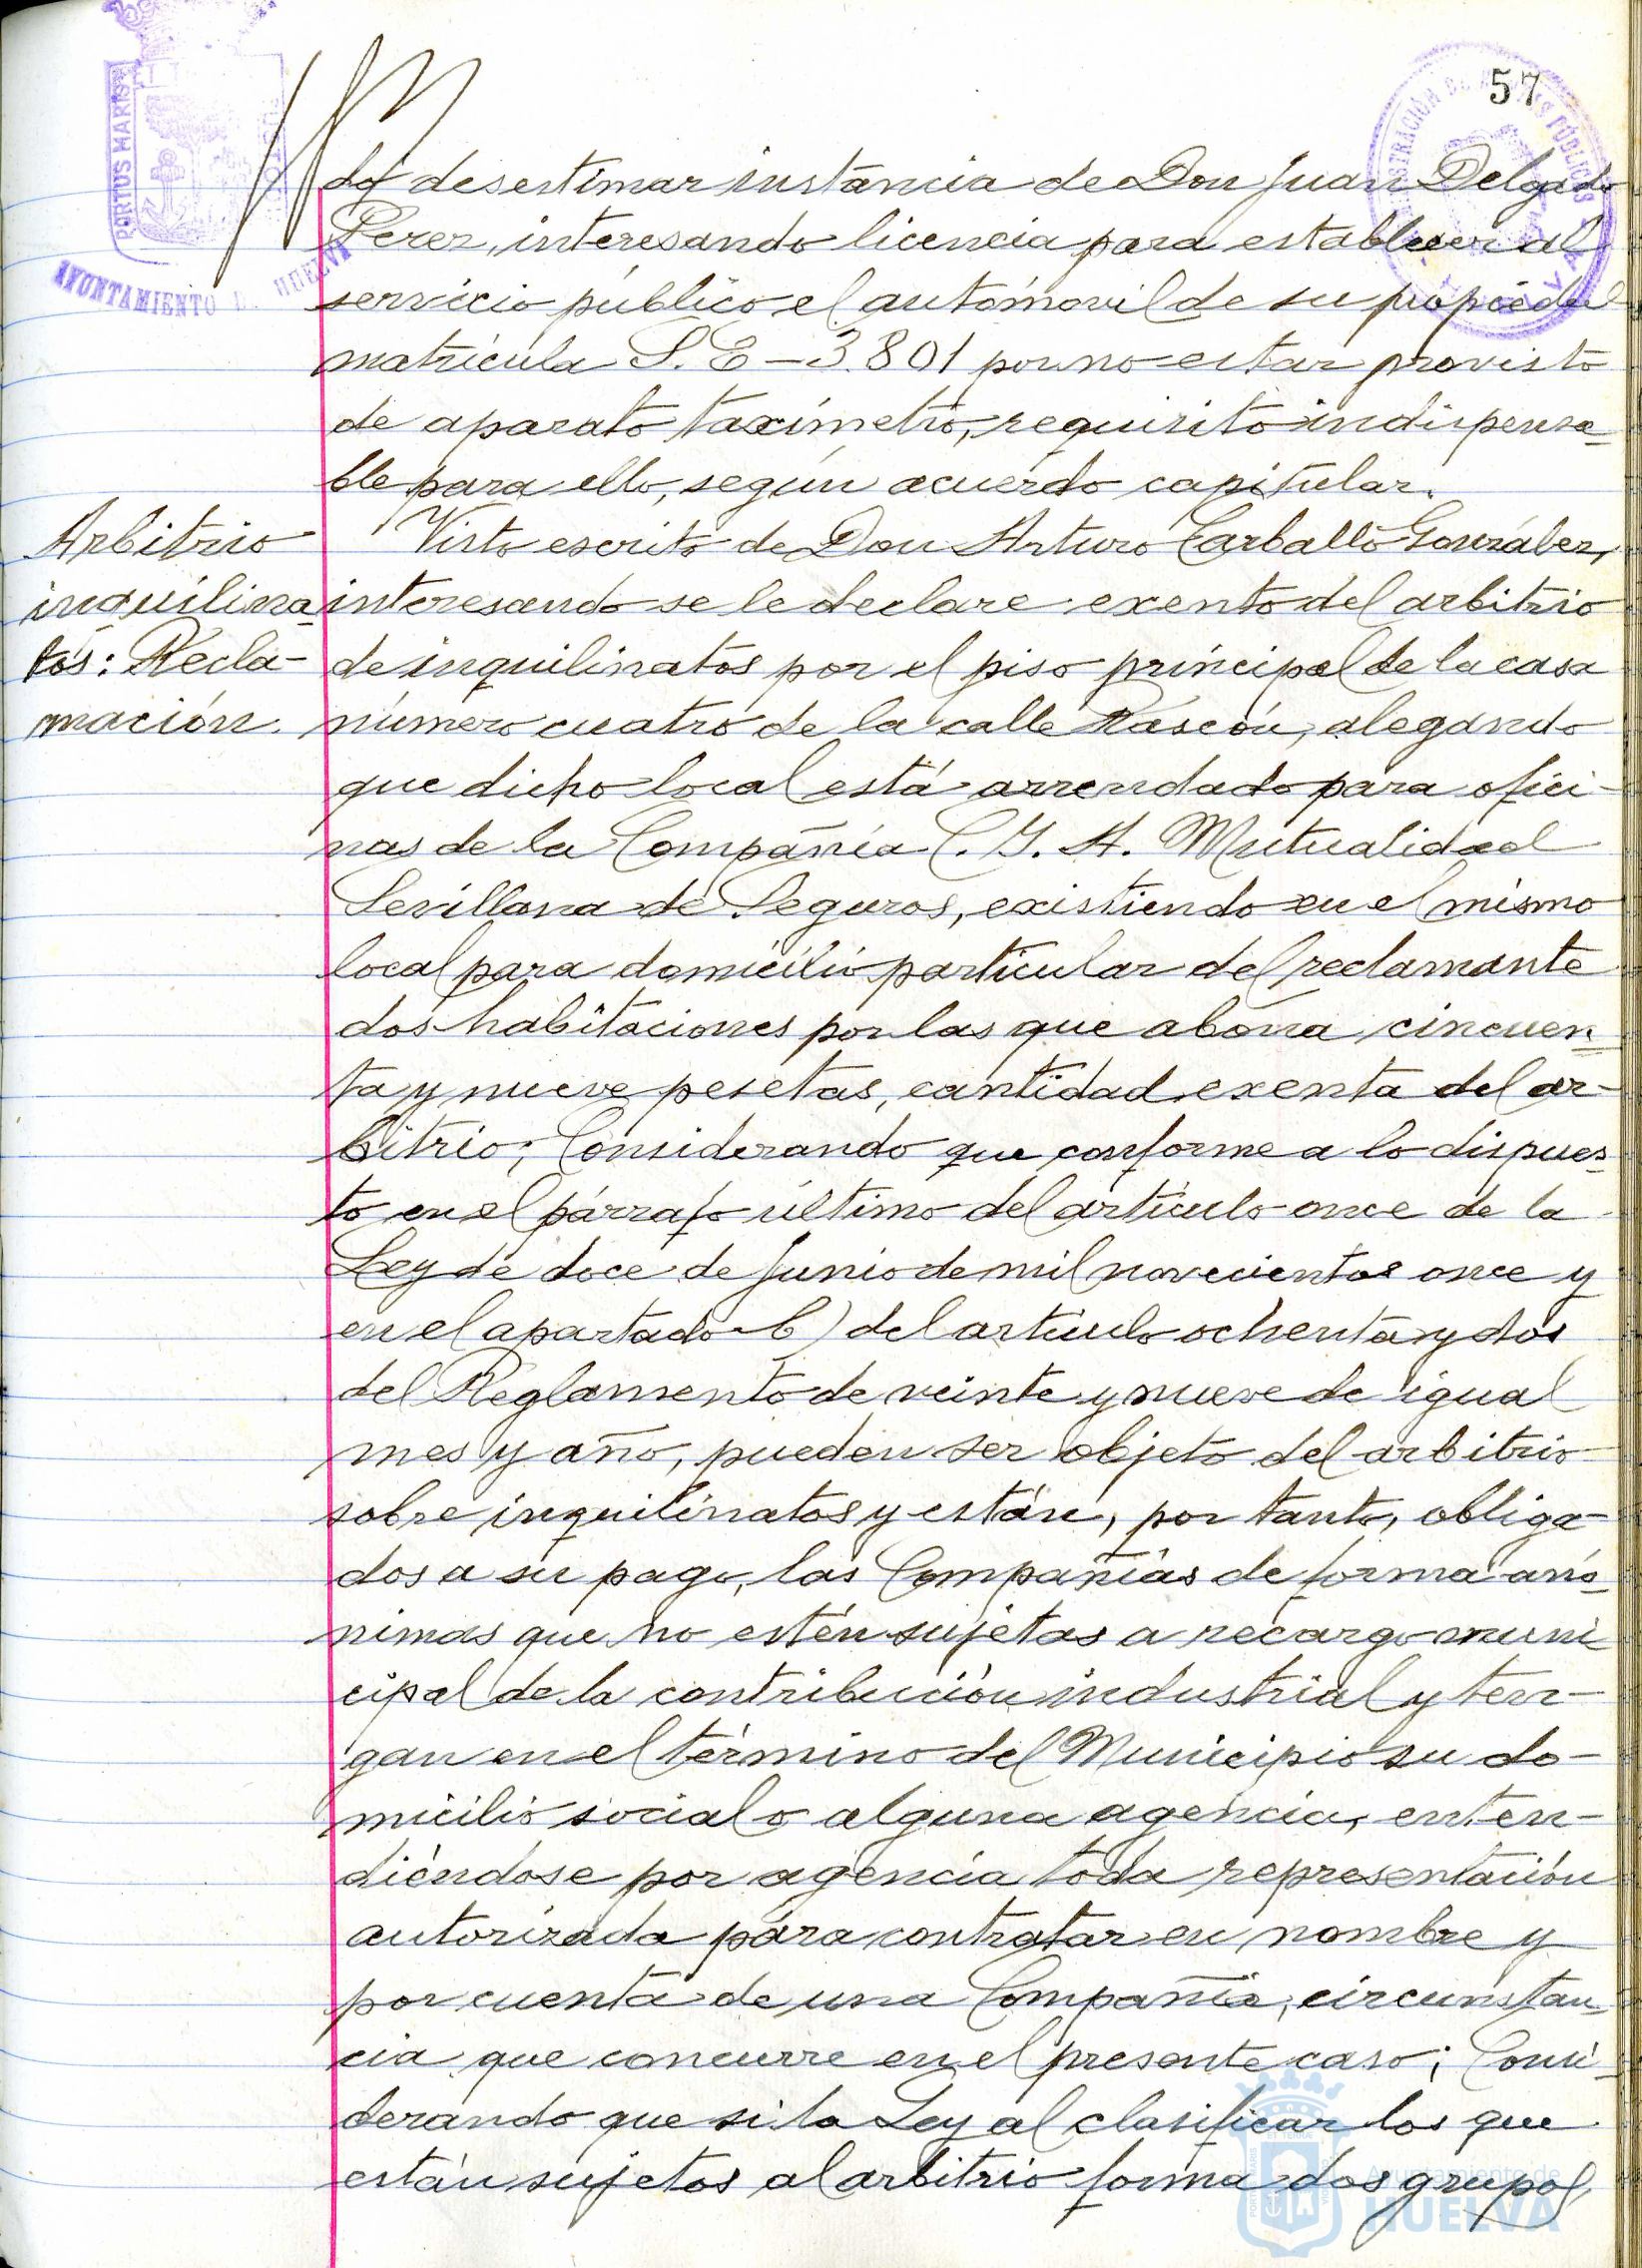 57
PORTUS MARIS
AYUNTAMIENTO DE HUELVA
do desestimar instancia de Don Juan Delgado
Perez, interesando licencia para establecer al
servicio público el automovil de su propiedad
matrícula S.E-3.801 por no estar provisto
de aparato taxímetro, requisito indispensa-
ble para ello, según acuerdo capitular.
Arbitrio
inquilina-
tos: Recla-
mación.
Visto escrito de Don Arturo Carballo González,
interesando se le declare exento del arbitrio
de inquilinatos por el piso principal de la casa
número cuatro de la calle Rascón, alegando
que dicho local está arrendado para ofici-
nas de la Compañía C. Y. A. Mutualidad
Sevillana de Seguros, existiendo en el mismo
local para domicilio particular del reclamante
dos habitaciones por las que abona cincuen-
ta y nueve pesetas, cantidad exenta del ar-
bitrio; Considerando que conforme a lo dispues-
to en el párrafo último del artículo once de la
Ley de doce de Junio de mil novecientos once y
en el apartado b) del artículo ochenta y dos
del Reglamento de veinte y nueve de igual
mes y año, pueden ser objeto del arbitrio
sobre inquilinatos y están, por tanto, obliga-
dos a su pago, las Compañías de forma anó-
nimas que no estén sujetas a recargo muni
cipal de la contribución industrial y ten-
gan en el término del Municipio su do-
micilio social o alguna agencia, enten-
diéndose por agencia toda representación
autorizada para contratar en nombre y
por cuenta de una Compañía, circunstan-
cia que concurre en el presente caso; Consi-
derando que si la Ley al clasificar los que
están sujetos al arbitrio forma dos grupos
Ayuntamiento de
HUELVA